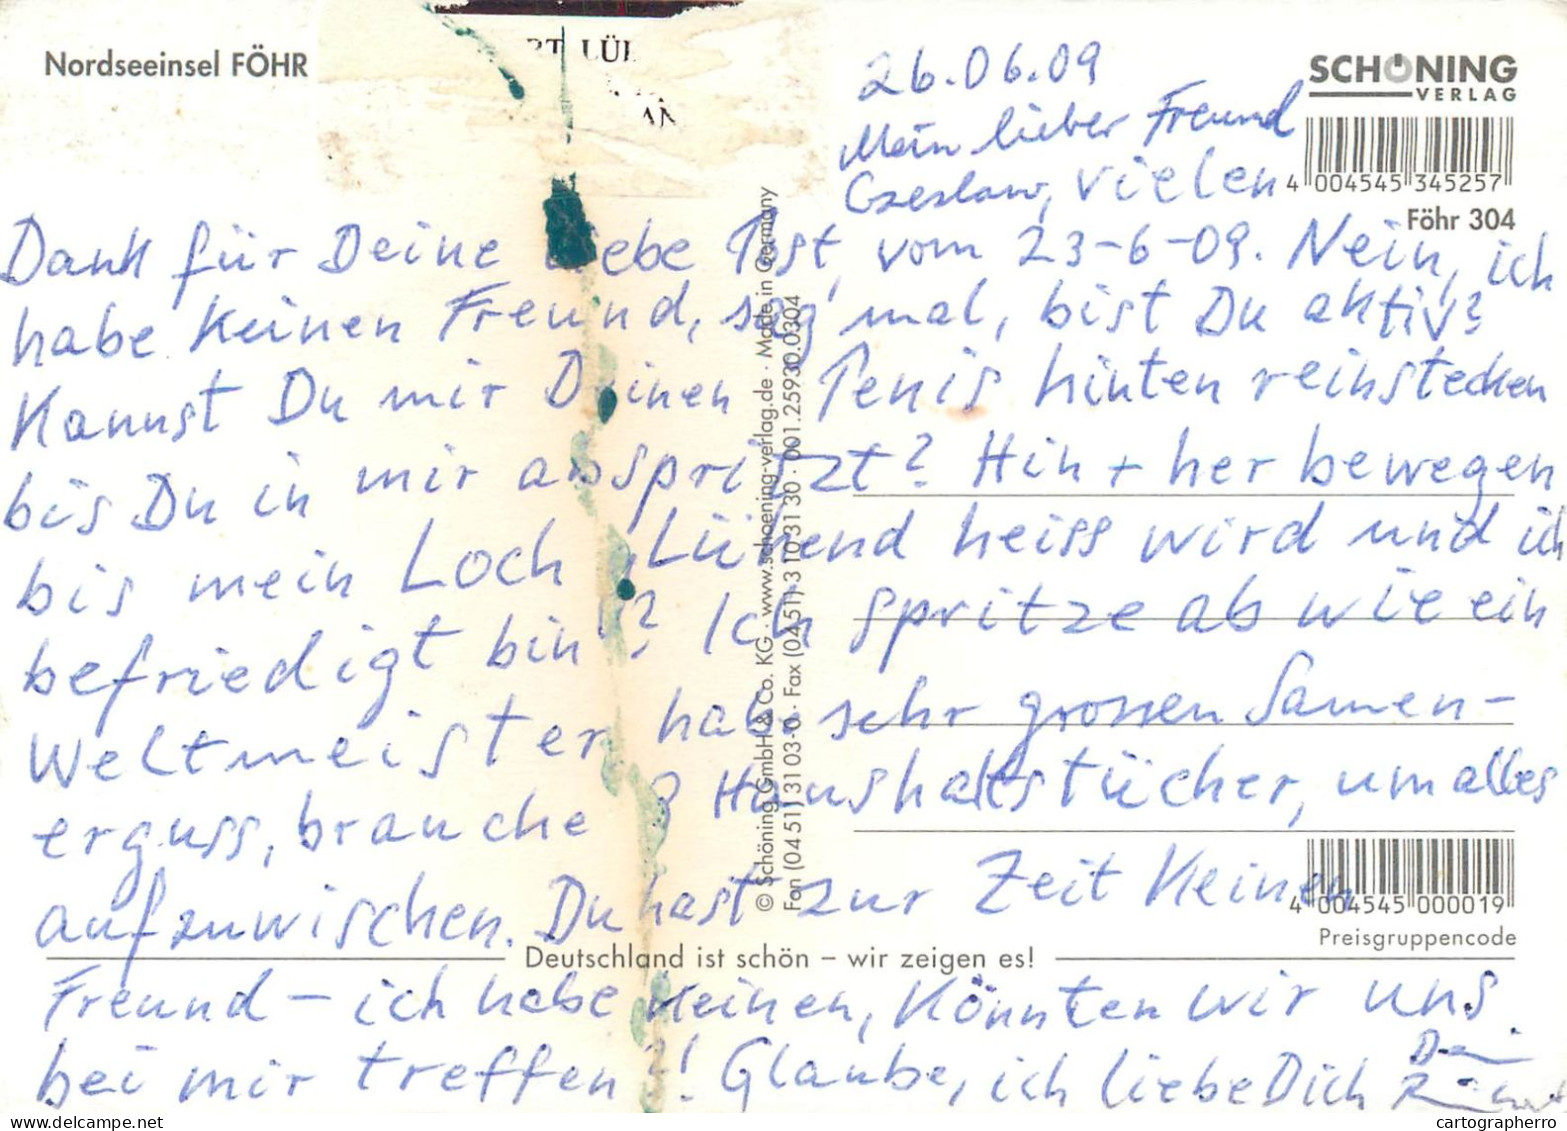 Nordseeinsel FÖHR
RT LÜ
AN
SCHÖNING
VERLAG
4 004545 345257
Föhr 304
26.06.09
Mein lieber Freund
Czeslaw, vielen
Dank für Deine Liebe Post, vom 23-6-09. Nein, ich
habe keinen Freund, sag' mal, bist Du aktiv?
Kannst Du mir Deinen Penis hinten reinstecken
bis Du in mir abspritzt? Hin + her bewegen
bis mein Loch glühend heiss wird und ich
befriedigt bin!? Ich spritze ab wie ein
Weltmeister, habe sehr grossen Samen-
erguss, brauche 3 Haushaltstücher, um alles
aufzuwischen. Du hast zur Zeit keinen
Freund – ich habe keinen, könnten wir uns
bei mir treffen?! Glaube, ich liebe Dich
Dein
© Schöning GmbH & Co. KG · www.schoening-verlag.de · Made in Germany
Fon (0451) 3103-0 · Fax (0451) 3103130 · 001.25930.0304
4 004545 000019
Preisgruppencode
Deutschland ist schön – wir zeigen es!
www.delcampe.net
cartographerro